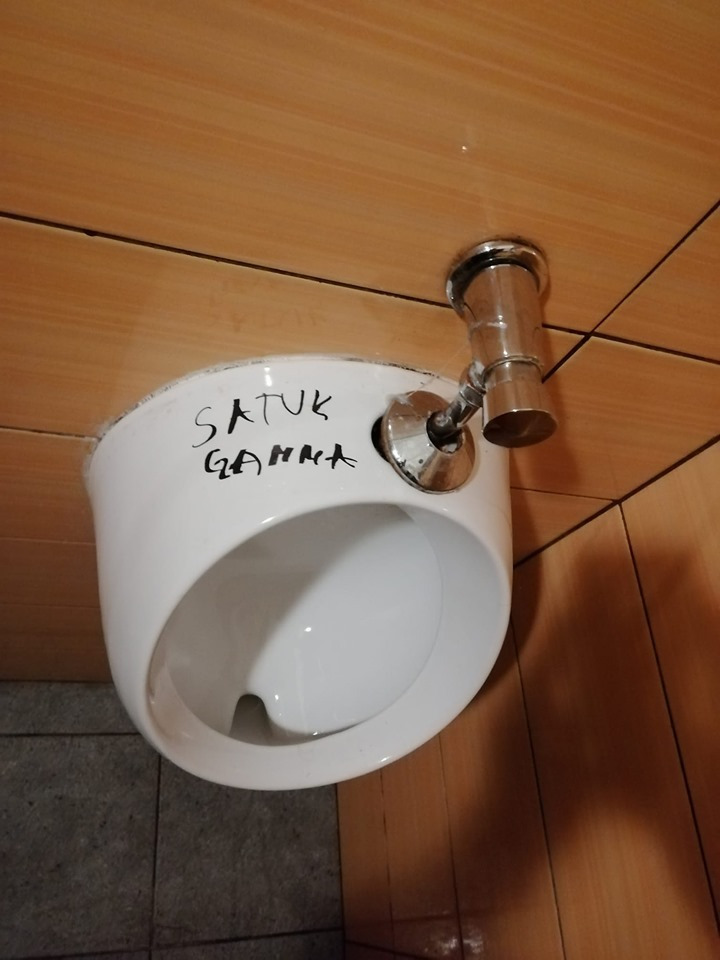 SATUK
GAMMA